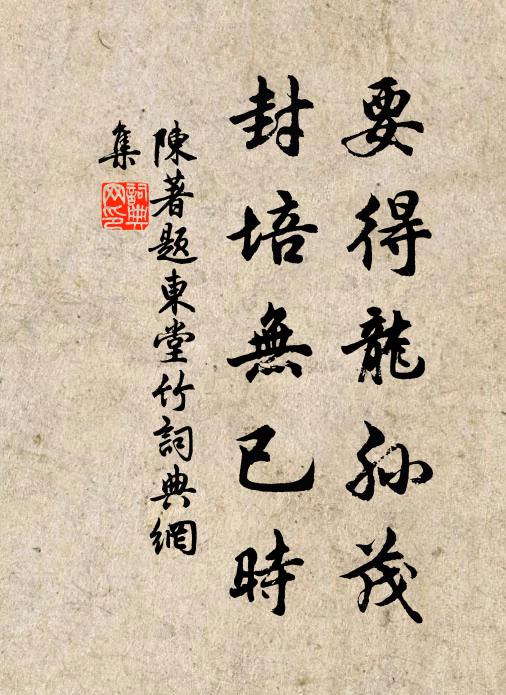 要得龍孫茂
封培無已時
陳著題東堂竹詞典網
集
詞典網印